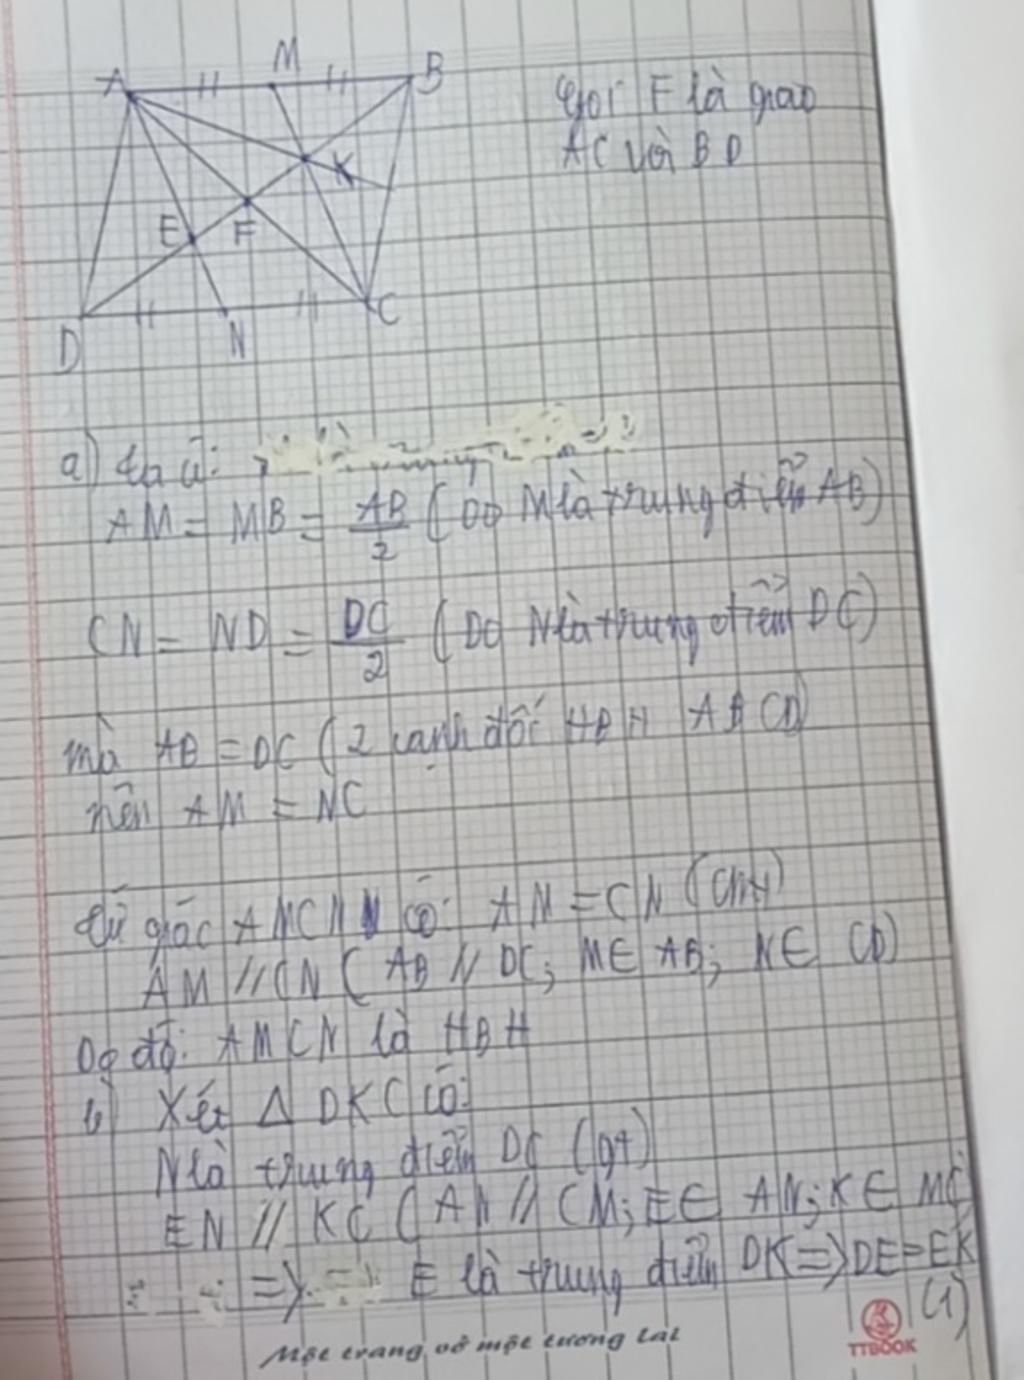 A M B
K
E F
D N C
Gọi F là giao
AC với BD
a) ta có:
AM = MB = AB/2 (Do M là trung điểm AB)
CN = ND = DC/2 (Do N là trung điểm DC)
mà AB = DC (2 cạnh đối HBH ABCD)
nên AM = NC
Tứ giác AMCN có: AM = CN (cmt)
AM // CN (AB // DC; M∈ AB; N∈ CD)
Do đó: AMCN là HBH
b) Xét Δ DKC có:
N là trung điểm DC (gt)
EN // KC (AN // CM; E∈ AN; K∈ MC)
=> E là trung điểm DK => DE = EK
(1)
Một trang vở một tương lai
TTBOOK